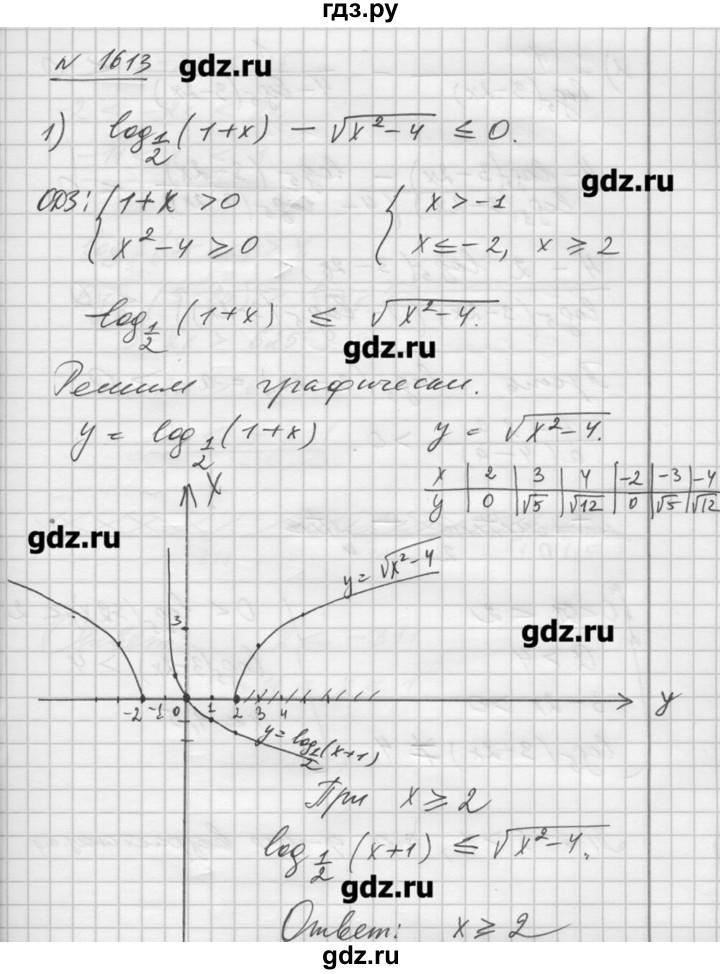 гдз.ру
№ 1613
gdz.ru
1) log_{1/2}(1+x) − √(x²−4) ≤ 0.
gdz.ru
ОДЗ: { 1+x > 0 { x > −1
x²−4 ≥ 0 x ≤ −2, x ≥ 2
log_{1/2}(1+x) ≤ √(x²−4).
gdz.ru
Решим графически.
y = log_{1/2}(1+x) y = √(x²−4).
x | 2 | 3 | 4 | −2 | −3 | −4
y | 0 | √5 | √12 | 0 | √5 | √12
X
gdz.ru
y = √(x²−4)
3
gdz.ru
-2 -1 0 1 2 3 4 y
y = log_{1/2}(x+1)
При x ≥ 2
log_{1/2}(x+1) ≤ √(x²−4).
gdz.ru
Ответ: x ≥ 2
gdz.ru